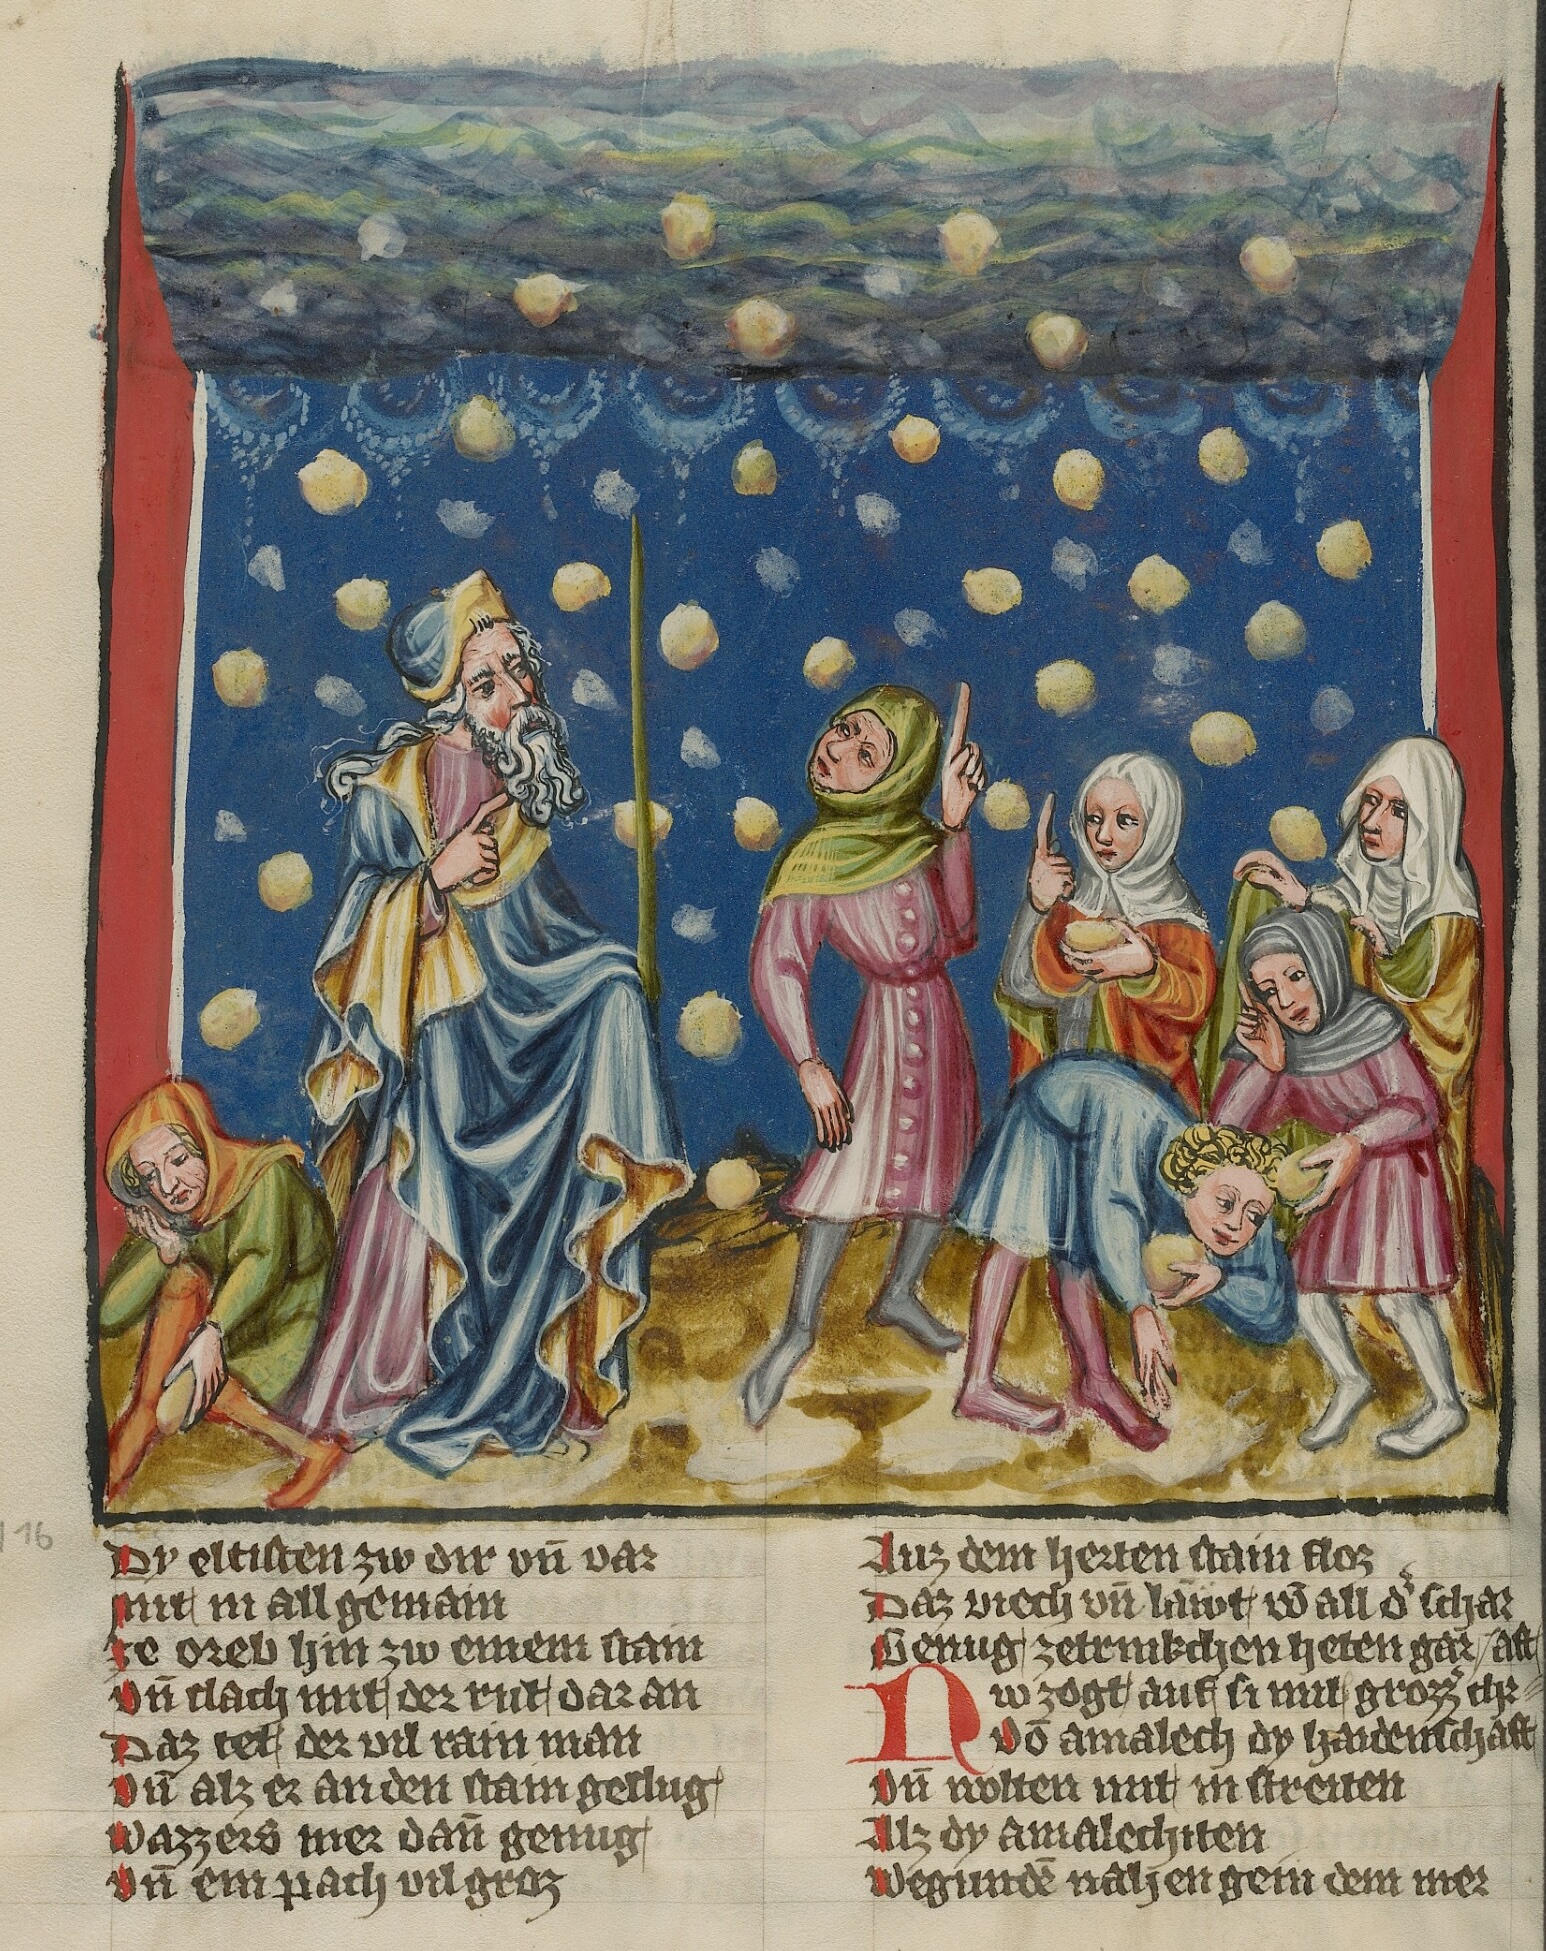 Dy eltisten zw dir vn̄ var
mit in all gemain
ze oreb hin zw einem stain
vn̄ slach mit der rut dar an
Daz tet der vil rain man
vn̄ alz er an den stain geslug
wazzers mer dan̄ genug
vn̄ ein pach vil groz
Auz dem herten stain floz
Daz viech vn̄ läwt vō all der schar
Genug zetrinkchen heten gar
N w zogt auf si mit grozzer chr-aft
vō amalech dy haidenschaft
vn̄ wolten mit in streiten
Alz dy amalechiten
Wegundē nahen gein dem mer
116